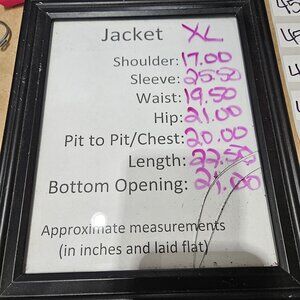 Jacket XL
Shoulder: 17.00
Sleeve: 25.50
Waist: 19.50
Hip: 21.00
Pit to Pit/Chest: 20.00
Length: 27.50
Bottom Opening: 21.00
Approximate measurements
(in inches and laid flat)